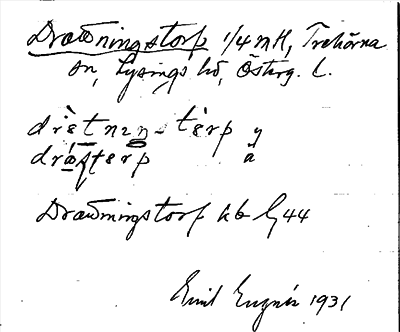 Drawningstorp 1/4 mtl, Trehörna
sn, Lysings hd, Österg. L.
drètnɪŋ-tèrp y
dråfterp å
Drawningstorp kb C, 44
Emil 1931